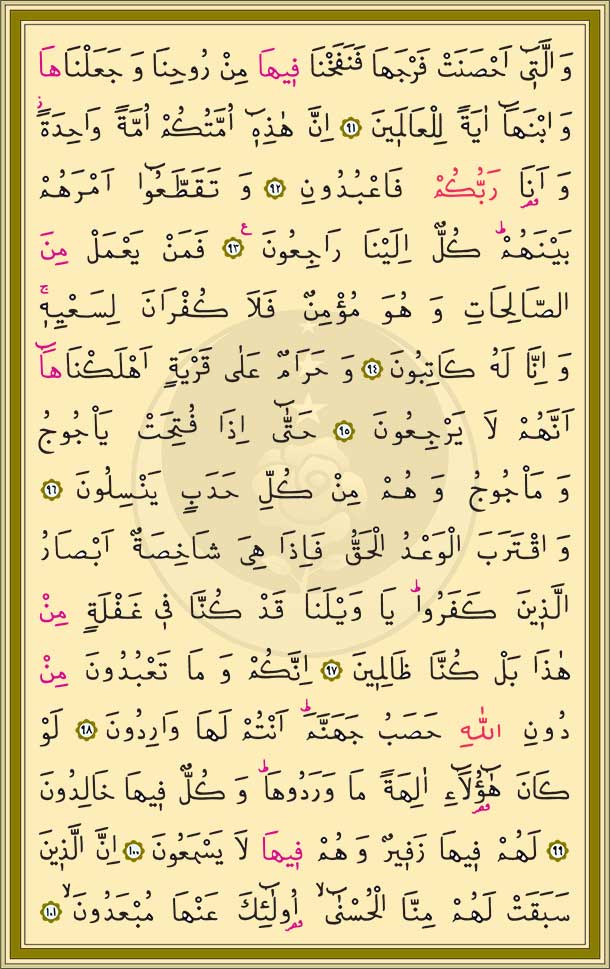 وَالَّتٖٓي اَحْصَنَتْ فَرْجَهَا فَنَفَخْنَا فٖيهَا مِنْ رُوحِنَا وَ جَعَلْنَاهَا
وَ ابْنَهَٓا اٰيَةً لِلْعَالَمٖينَ ﴿٩١﴾ اِنَّ هٰذِهٖٓ اُمَّتُكُمْ اُمَّةً وَاحِدَةًؗ
وَ اَنَا۬ رَبُّكُمْ فَاعْبُدُونِ ﴿٩٢﴾ وَ تَقَطَّعُٓوا اَمْرَهُمْ
بَيْنَهُمْؕ كُلٌّ اِلَيْنَا رَاجِعُونَࣖ ﴿٩٣﴾ فَمَنْ يَعْمَلْ مِنَ
الصَّالِحَاتِ وَ هُوَ مُؤْمِنٌ فَلَا كُفْرَانَ لِسَعْيِهٖۚ
وَ اِنَّا لَهُ كَاتِبُونَ ﴿٩٤﴾ وَ حَرَامٌ عَلٰى قَرْيَةٍ اَهْلَكْنَاهَٓا
اَنَّهُمْ لَا يَرْجِعُونَ ﴿٩٥﴾ حَتّٰٓى اِذَا فُتِحَتْ يَاْجُوجُ
وَ مَاْجُوجُ وَ هُمْ مِنْ كُلِّ حَدَبٍ يَنْسِلُونَ ﴿٩٦﴾
وَ اقْتَرَبَ الْوَعْدُ الْحَقُّ فَاِذَا هِيَ شَاخِصَةٌ اَبْصَارُ
الَّذٖينَ كَفَرُواؕ يَا وَيْلَنَا قَدْ كُنَّا فٖي غَفْلَةٍ مِنْ
هٰذَا بَلْ كُنَّا ظَالِمٖينَ ﴿٩٧﴾ اِنَّكُمْ وَ مَا تَعْبُدُونَ مِنْ
دُونِ اللّٰهِ حَصَبُ جَهَنَّمَؕ اَنْتُمْ لَهَا وَارِدُونَ ﴿٩٨﴾ لَوْ
كَانَ هٰٓؤُ۬لَٓاءِ اٰلِهَةً مَا وَرَدُوهَاؕ وَ كُلٌّ فٖيهَا خَالِدُونَ
﴿٩٩﴾ لَهُمْ فٖيهَا زَفٖيرٌ وَ هُمْ فٖيهَا لَا يَسْمَعُونَ ﴿١٠٠﴾ اِنَّ الَّذٖينَ
سَبَقَتْ لَهُمْ مِنَّا الْحُسْنٰٓىۙ اُو۬لٰٓئِكَ عَنْهَا مُبْعَدُونَۙ ﴿١٠١﴾